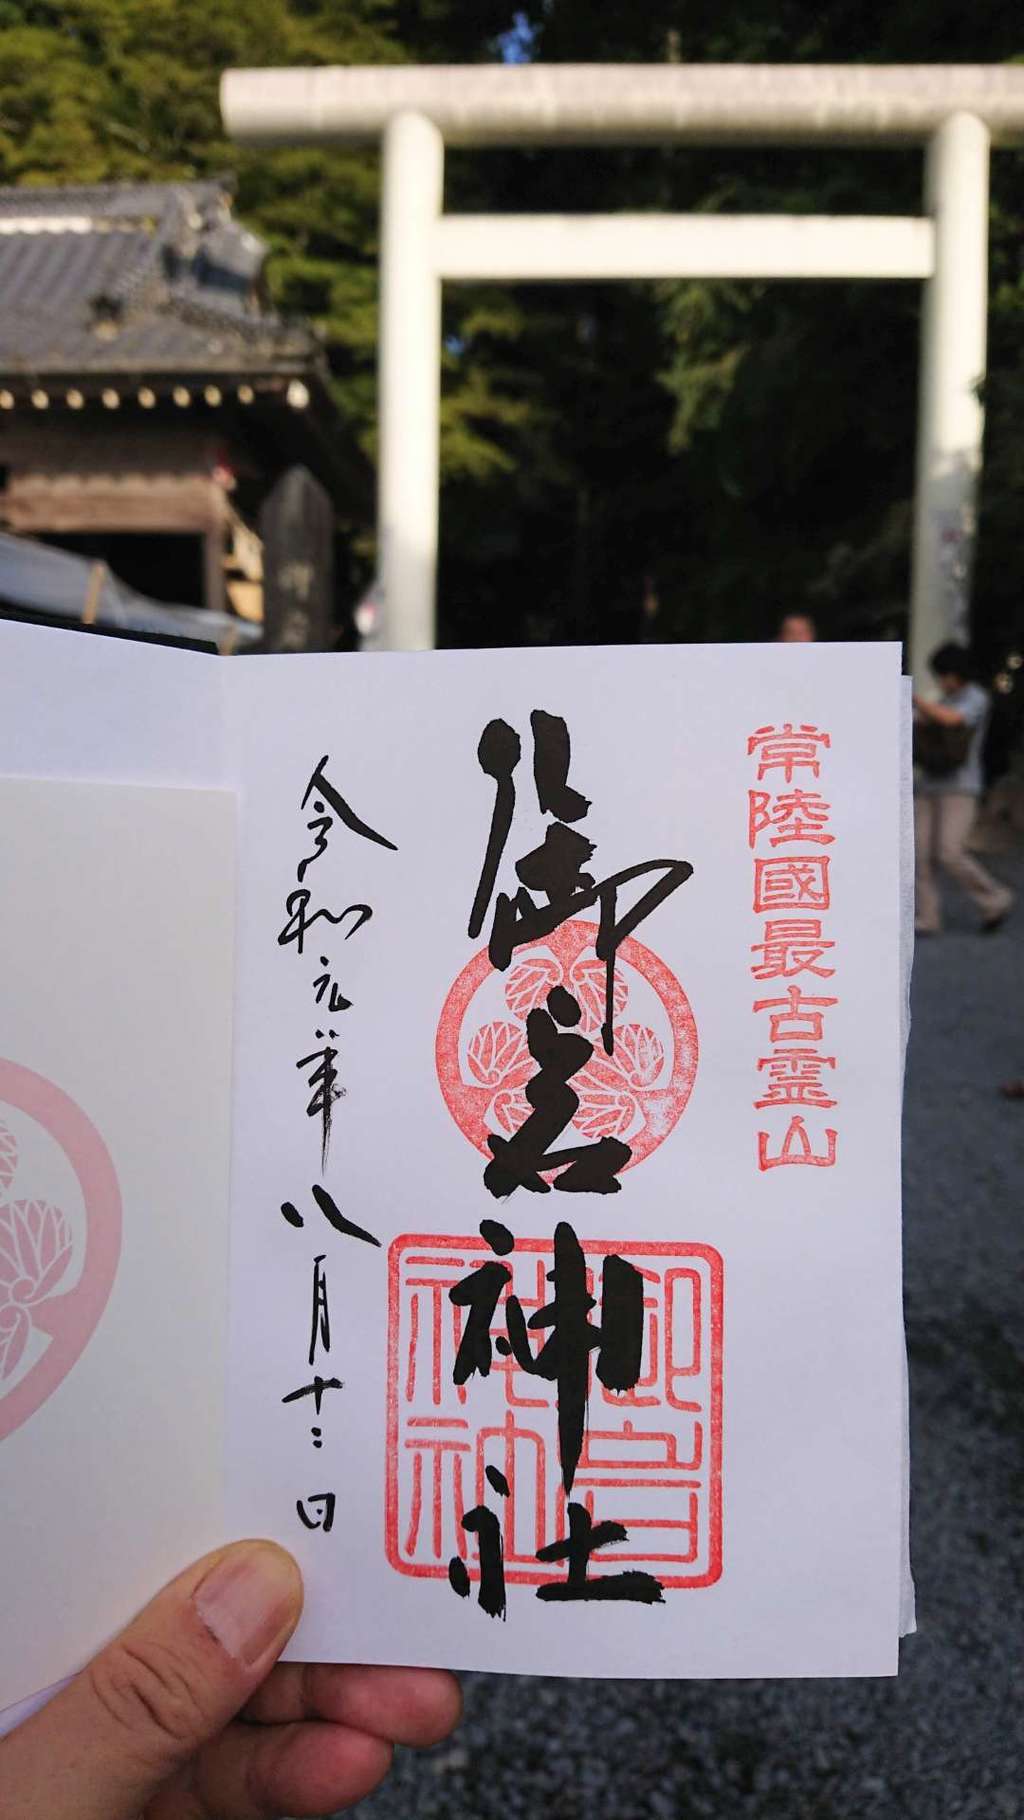 常陸國最古霊山
御岩神社
御岩神社
令和元年八月十二日